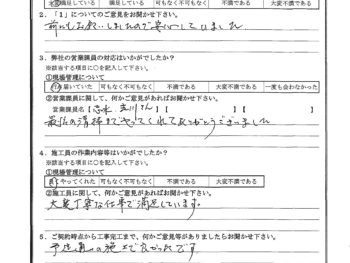 大変満足している 満足している 可もなく不可もなく 不満である 大変不満である
2．「1」についてのご意見をお聞かせ下さい。
前にもお願いしましたので安心していました
3．弊社の営業課員の対応はいかがでしたか？
※該当する項目に○を記入して下さい。
①現場管理について
行き届いていた 可もなく不可もなく 不満である 大変不満である 一度も会わなかった
②営業課員に関して、何かご意見があればお聞かせ下さい。
営業課員名【 立川さん 】【 】
最后の清掃までやってくれてありがとうございました
4．施工員の作業内容等はいかがでしたか？
※該当する項目に○を記入して下さい。
①現場管理について
良くやってくれた 可もなく不可もなく 不満である 大変不満である
②施工員に関して、何かご意見があればお聞かせ下さい。
大変丁寧な仕事で満足しています。
5．ご契約時点から工事完工まで、何かご意見等がありましたらお聞かせ下さい。
予定通りの施工で良かったです